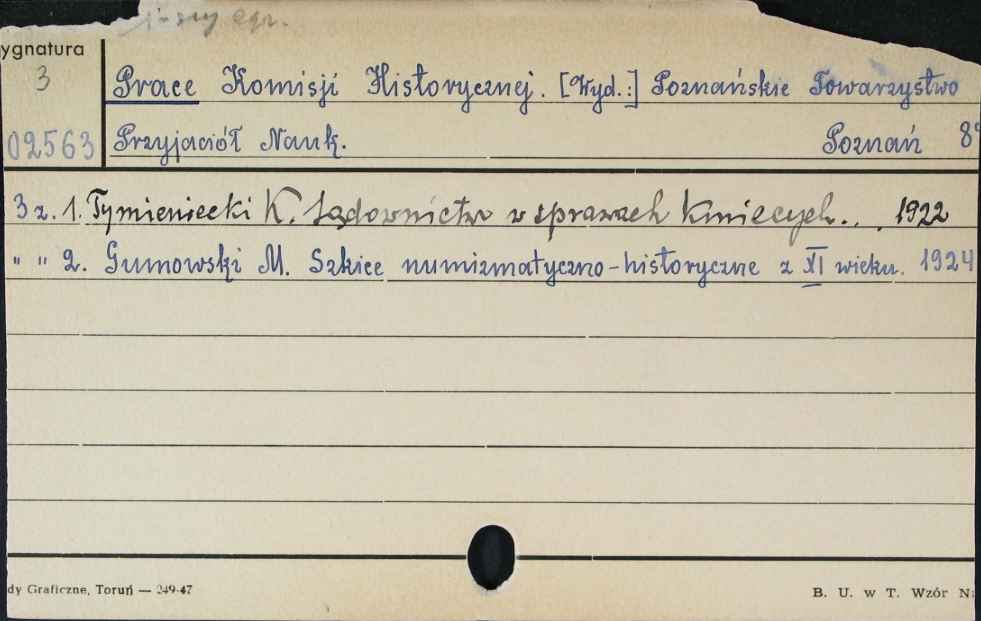 ygnatura
3
02563
Prace Komisji Historycznej. [Wyd.:] Poznańskie Towarzystwo
Przyjaciół Nauk. Poznań 8°
3 z. 1. Tymieniecki K. Sądownictwo w sprawach kmiecych... 1922
" " 2. Gumowski M. Szkice numizmatyczno-historyczne z XI wieku. 1924
dy Graficzne, Toruń — 249-47
B. U. w T. Wzór N